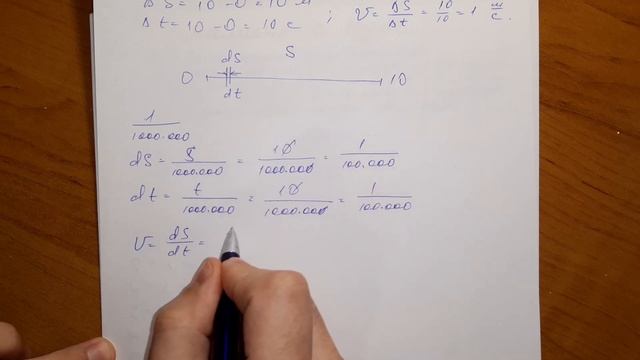 Δ S = 10 - 0 = 10 м
Δ t = 10 - 0 = 10 с ; V = ΔS/Δt = 10/10 = 1 м/с.
dS S
0 10
dt
1/1000.000
dS = S/1000.000 = 10/1000.000 = 1/100.000
dt = t/1000.000 = 10/1000.000 = 1/100.000
V = dS/dt =